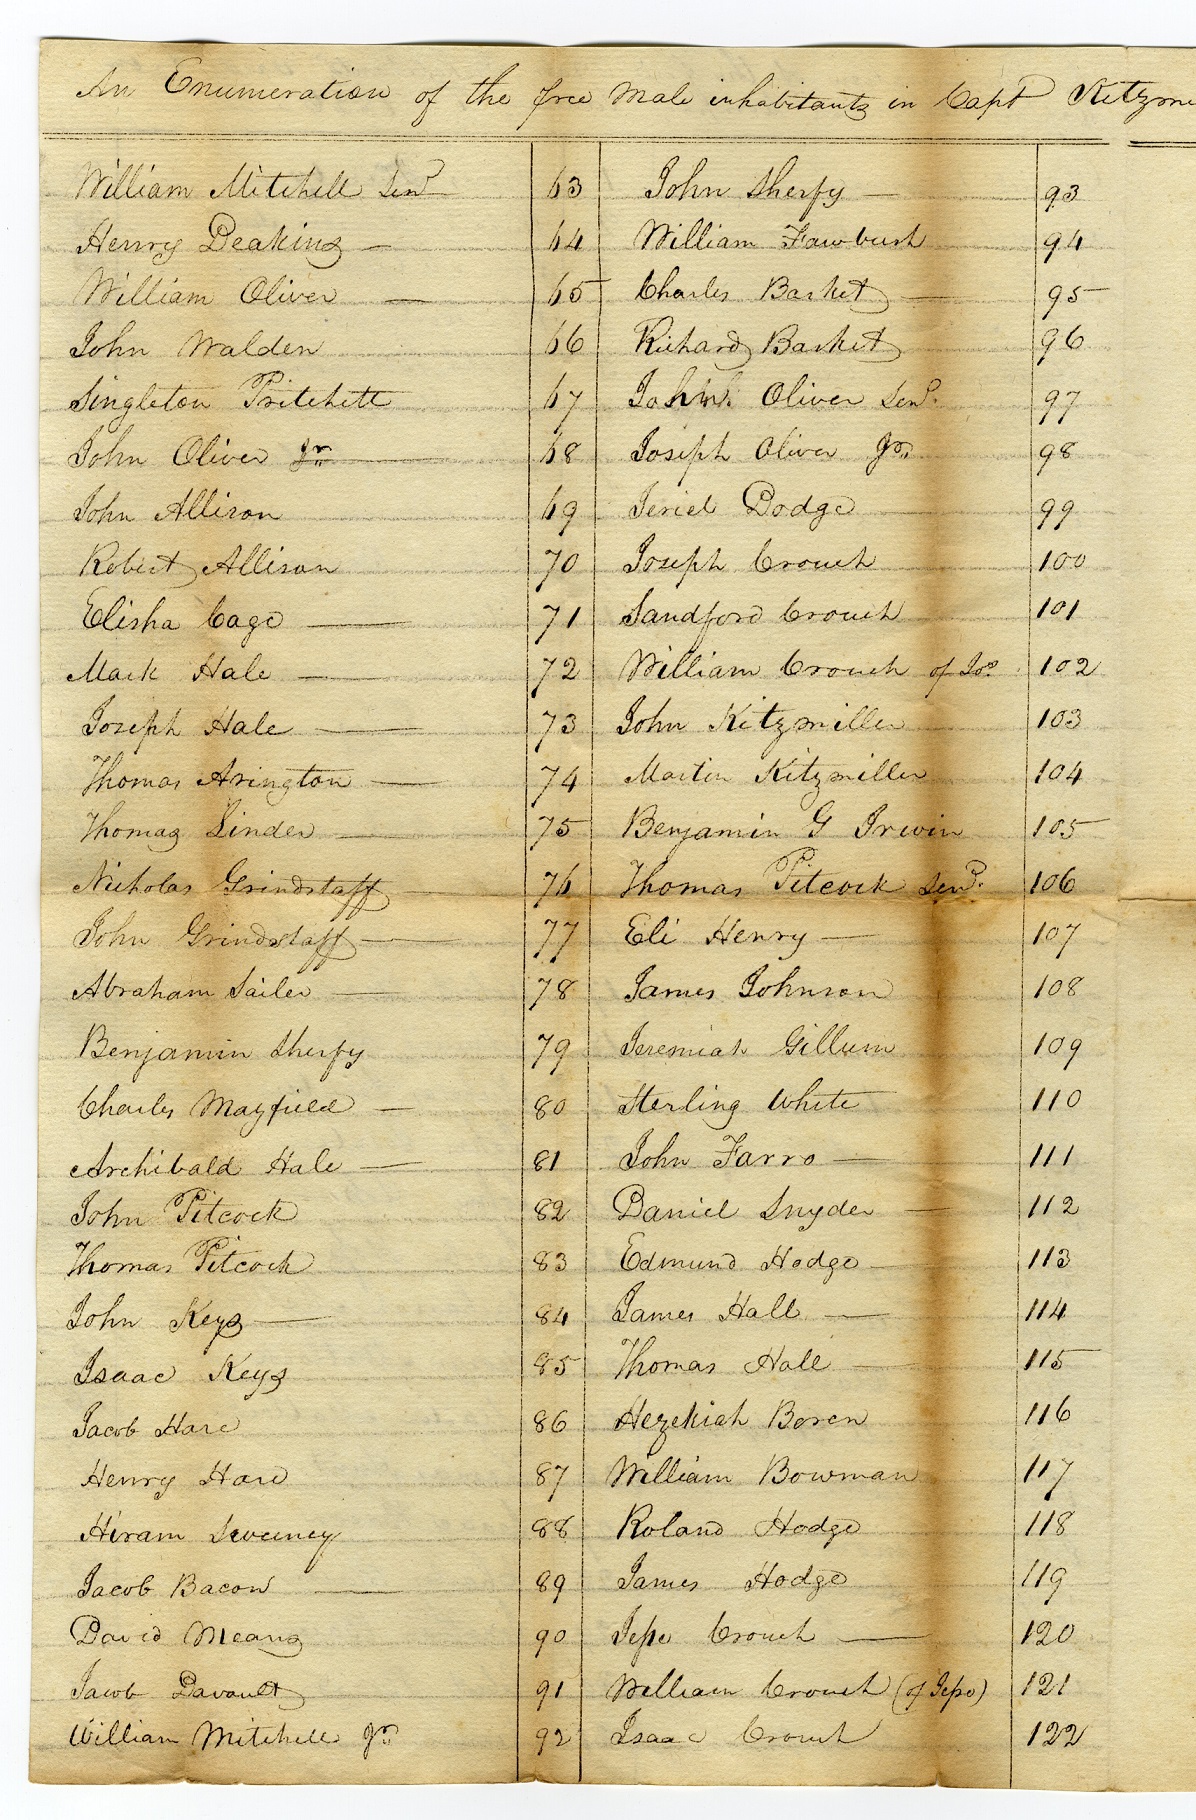 An Enumeration of the free male inhabitants in Capt Kitzmi
William Mitchell Senr 63
Henry Deakins 64
William Oliver 65
John Walden 66
Singleton Pritchett 67
John Oliver Jr. 68
John Allison 69
Robert Allison 70
Elisha Cage 71
Mark Hale 72
Joseph Hale 73
Thomas Arington 74
Thomas Linder 75
Nicholas Grindstaff 76
John Grindstaff 77
Abraham Sailer 78
Benjamin Sherfy 79
Charles Mayfield 80
Archibald Hale 81
John Pitcock 82
Thomas Pitcock 83
John Keys 84
Isaac Keys 85
Jacob Hare 86
Henry Hare 87
Hiram Sweeney 88
Jacob Bacon 89
David Means 90
Jacob Davault 91
William Mitchell Jr. 92
John Sherfy 93
William Fawbush 94
Charles Basket 95
Richard Basket 96
John Oliver Senr. 97
Joseph Oliver Jr. 98
Jeriel Dodge 99
Joseph Crouch 100
Sandford Crouch 101
William Crouch of Jos. 102
John Kitzmiller 103
Martin Kitzmiller 104
Benjamin G Irwin 105
Thomas Pitcock Senr. 106
Eli Henry 107
James Johnson 108
Jeremiah Gillum 109
Sterling White 110
John Farro 111
Daniel Snyder 112
Edmund Hodge 113
James Hall 114
Thomas Hale 115
Hezekiah Boren 116
William Bowman 117
Roland Hodge 118
James Hodge 119
Jesse Crouch 120
William Crouch (of Jesse) 121
Isaac Crouch 122